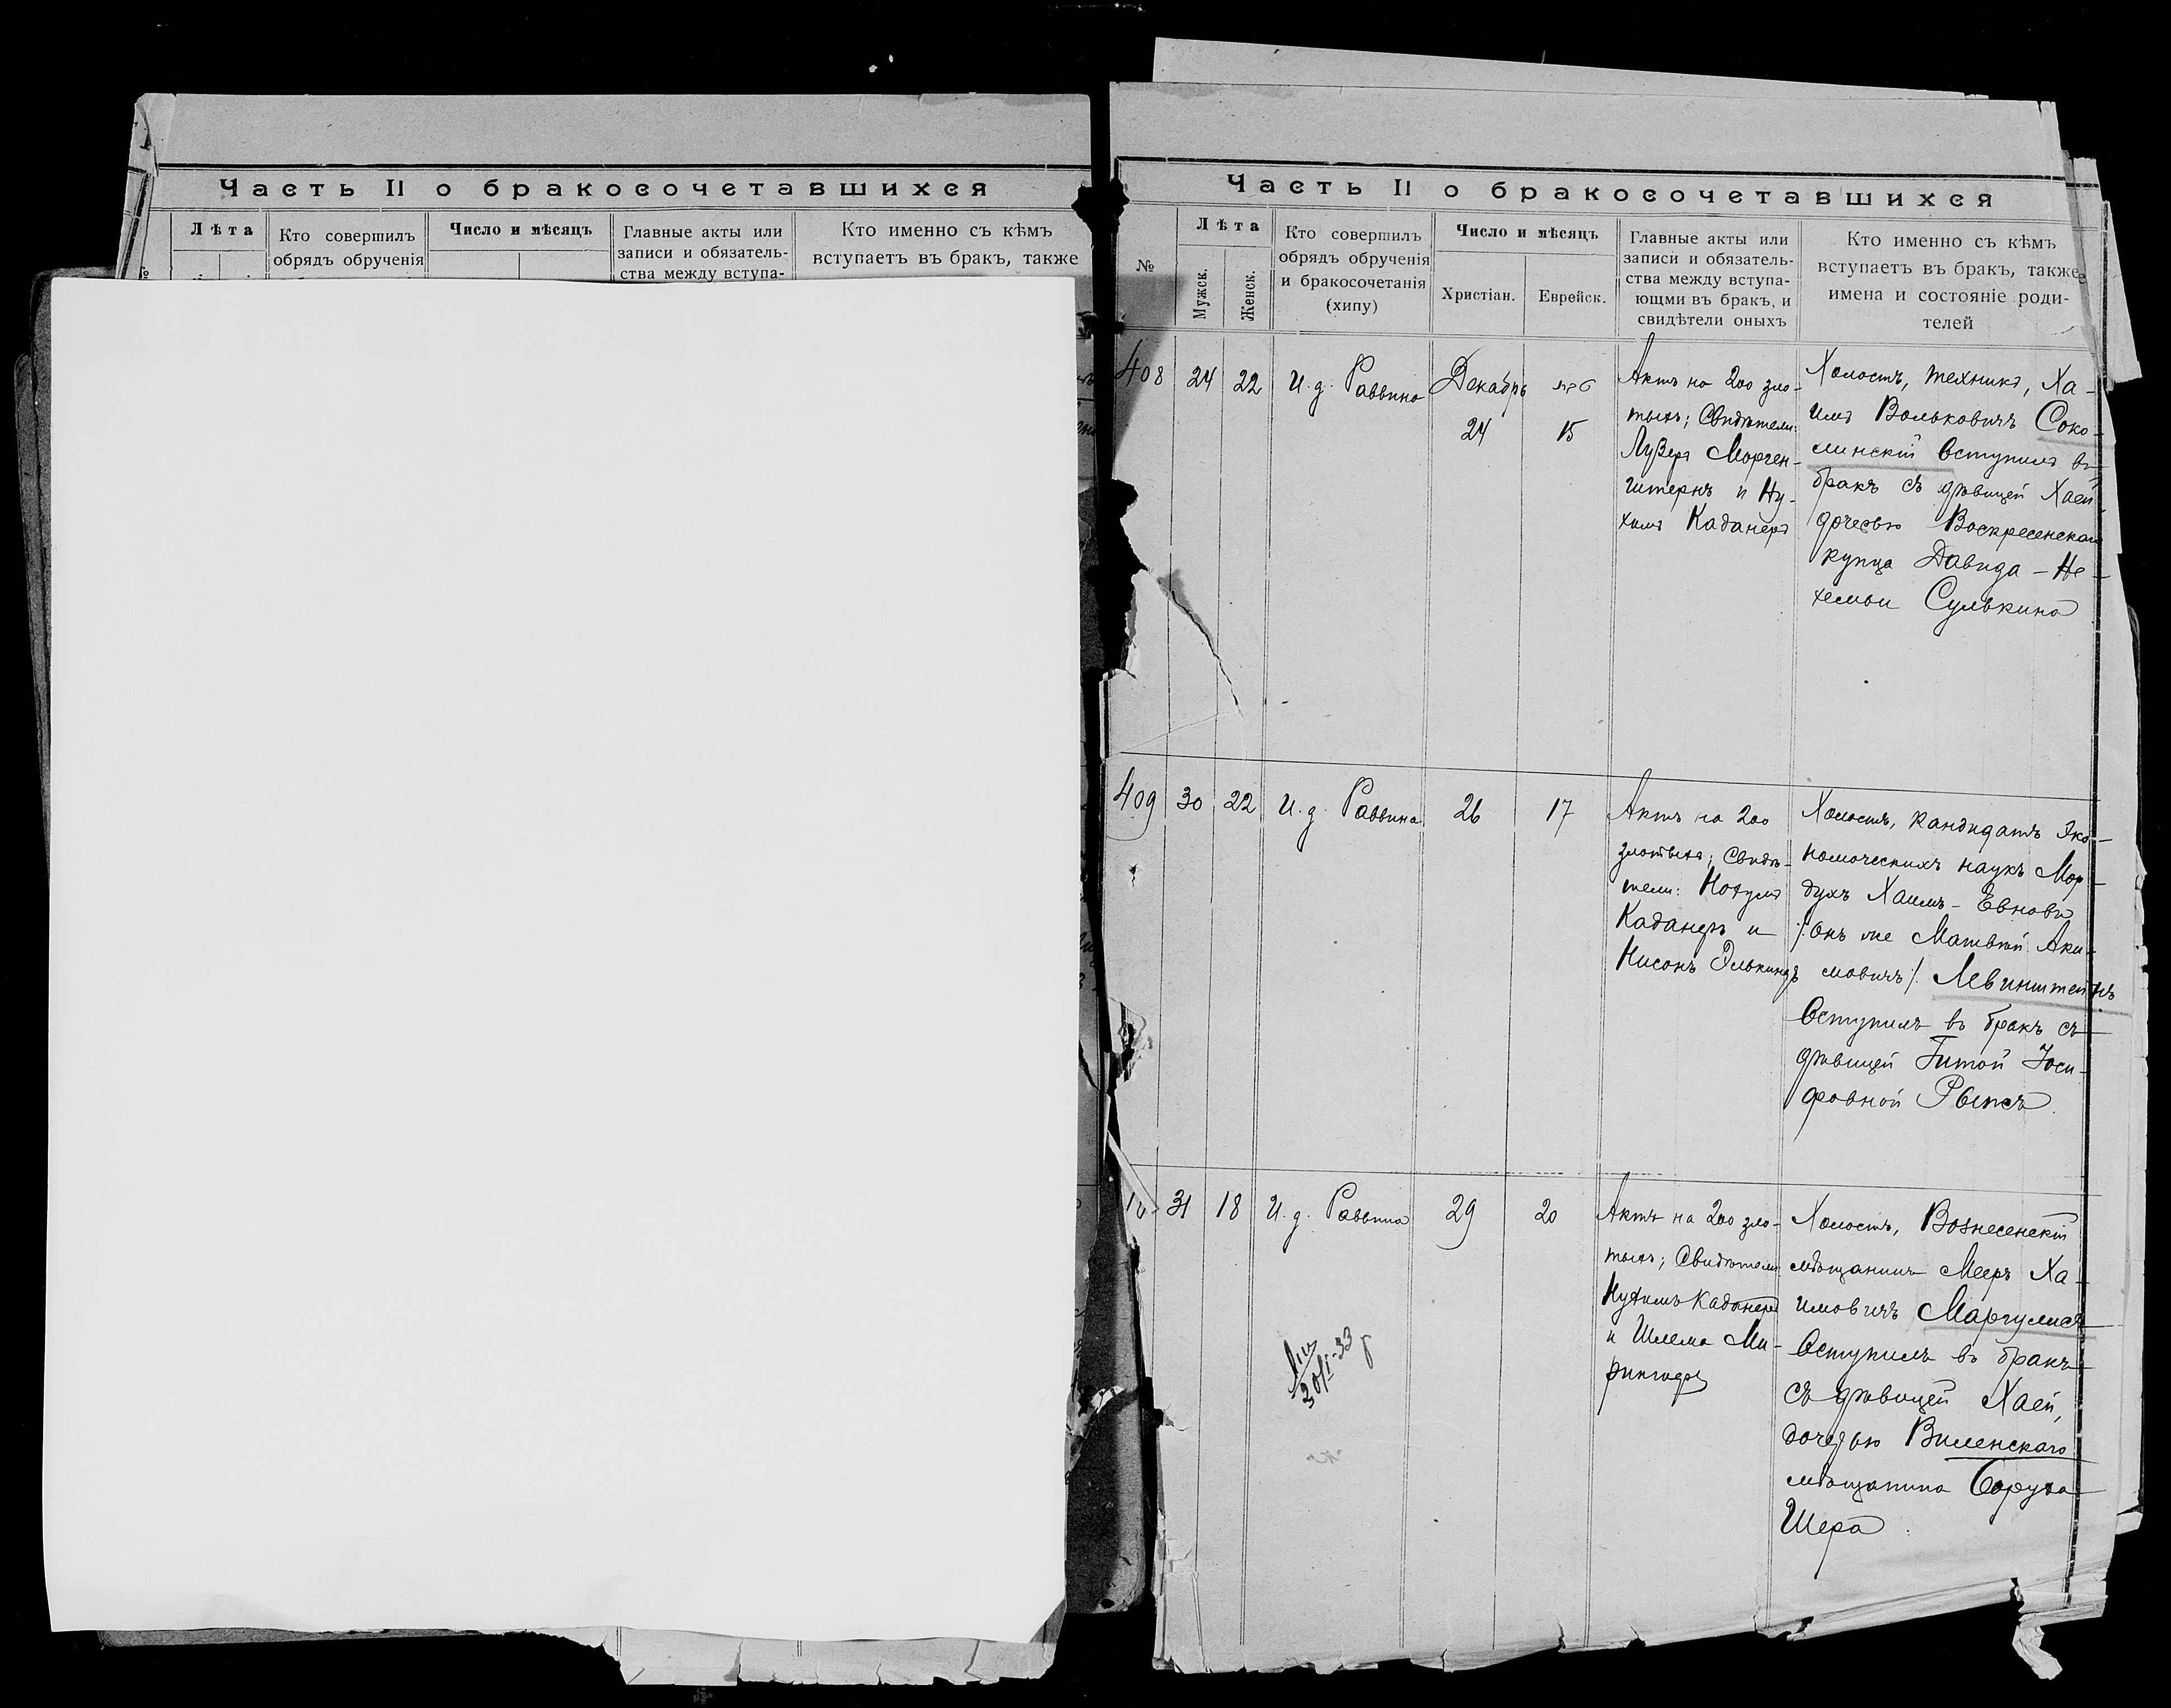 Часть II о бракосочетавшихся
Лѣта
Кто совершилъ
обрядъ обрученія
Число и мѣсяцъ
Главные акты или
записи и обязатель-
ства между вступа-
Кто именно съ кѣмъ
вступаетъ въ бракъ, также
Часть II о бракосочетавшихся
№
Лѣта
Мужск.
Женск.
Кто совершилъ
обрядъ обрученія
и бракосочетанія
(хипу)
Число и мѣсяцъ
Христіан.
Еврейск.
Главные акты или
записи и обязатель-
ства между вступа-
ющми въ бракъ, и
свидѣтели оныхъ
Кто именно съ кѣмъ
вступаетъ въ бракъ, также
имена и состояніе роди-
телей
408
24
22
И. д. Раввина
Декабрь
24
15
Актъ на 200 зло-
тыхъ; Свидѣтели:
Лузеръ Морген-
штернъ и Ну-
химъ Каданеръ
Холостъ, техникъ, Ха-
имъ Вольковичъ Соко-
линскій вступилъ въ
бракъ съ дѣвицей Хаей,
дочерью Воскресенскаго
купца Давида-Не-
хемьи Сулькина
409
30
22
И. д. Раввина
26
17
Актъ на 200
злотыхъ; Свидѣ-
тели: Нохумъ
Каданеръ и
Нисонъ Элькиндъ
Холостъ, кандидатъ эко-
номическихъ наукъ Мор-
духъ Хаимъ-Евновъ
/: онъ же Матвѣй Аки-
мовичъ /: Левинштейнъ
вступилъ въ бракъ съ
дѣвицей Гитой Іоси-
фовной Рыпсъ
31
18
И. д. Раввина
29
20
Актъ на 200 зло-
тыхъ; Свидѣтели
Нухимъ Каданеръ
и Шлема Ми-
Холостъ, Вознесенскій
мѣщанинъ Мееръ Ха-
имовичъ Маргулисъ
вступилъ въ бракъ
съ дѣвицей Хаей,
дочерью Виленскаго
мѣщанина Боруха
Шера